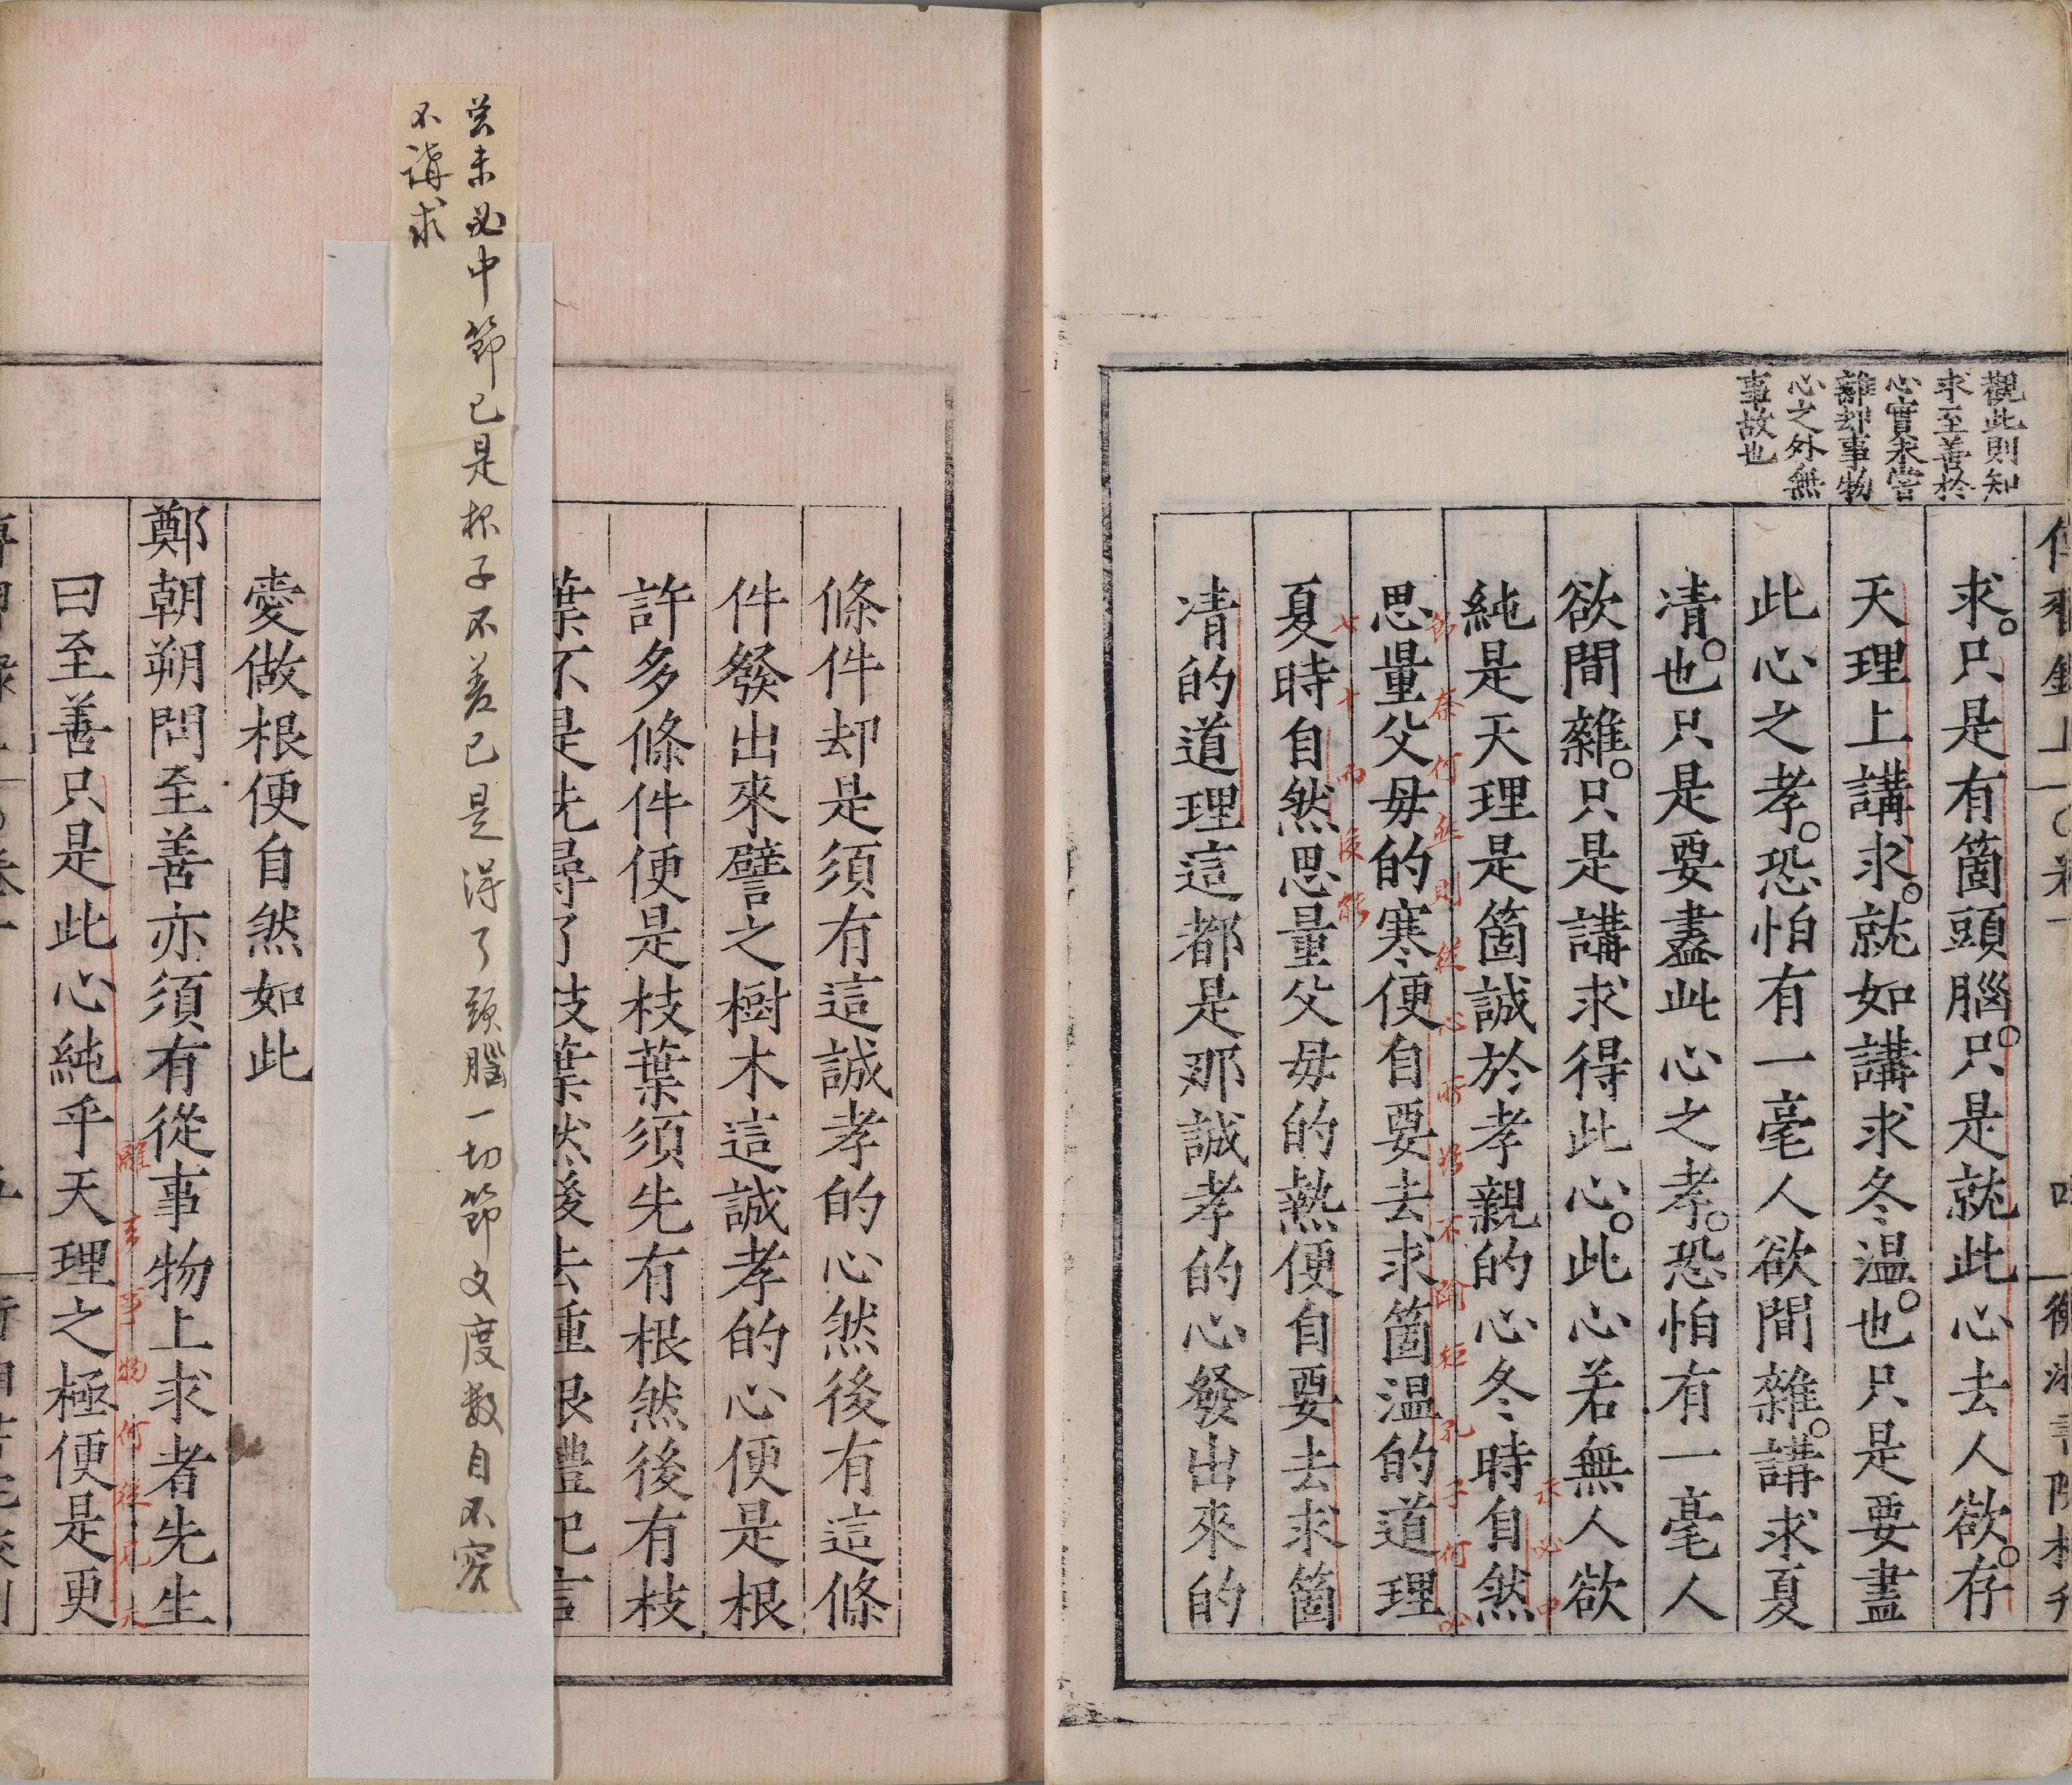 觀此則知
求至善於
心實未嘗
離却事物
心之外無
事故也
求只是有箇頭腦只是就此心去人欲存
天理上講求就如講求冬温也只是要盡
此心之孝恐怕有一毫人欲間雜講求夏
凊也只是要盡此心之孝恐怕有一毫人
欲間雜只是講求得此心此心若無人欲
未必中
純是天理是箇誠於孝親的心冬時自然
思量父母的寒便自要去求箇温的道理
七十而後能
夏時自然思量父母的熱便自要去求箇
凊的道理這都是那誠孝的心發出來的
條件却是須有這誠孝的心然後有這條
件發出來譬之樹木這誠孝的心便是根
許多條件便是枝葉須先有根然後有枝
葉不是先尋了枝葉然後去種根禮記言
未必中節已是根子不差已是得了頭腦一切節文度数自不容
不講求
愛做根便自然如此
鄭朝朔問至善亦須有從事物上求者先生
離去事物何從見天
曰至善只是此心純乎天理之極便是更